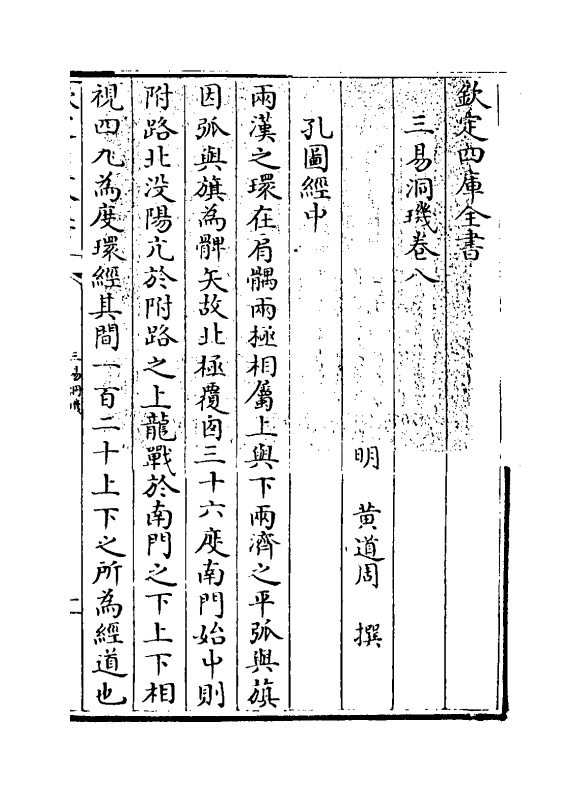 欽定四庫全書
三易洞璣卷八
明 黄道周 撰
孔圖經中
兩漢之環在肩髃兩極相屬上與下兩濟之平弧與旗
因弧與旗為髀矢故北極覆囟三十六度南門始中則
附路北没陽亢於附路之上龍戰於南門之下上下相
視四九為度環經其間一百二十上下之所為經道也
三易洞璣